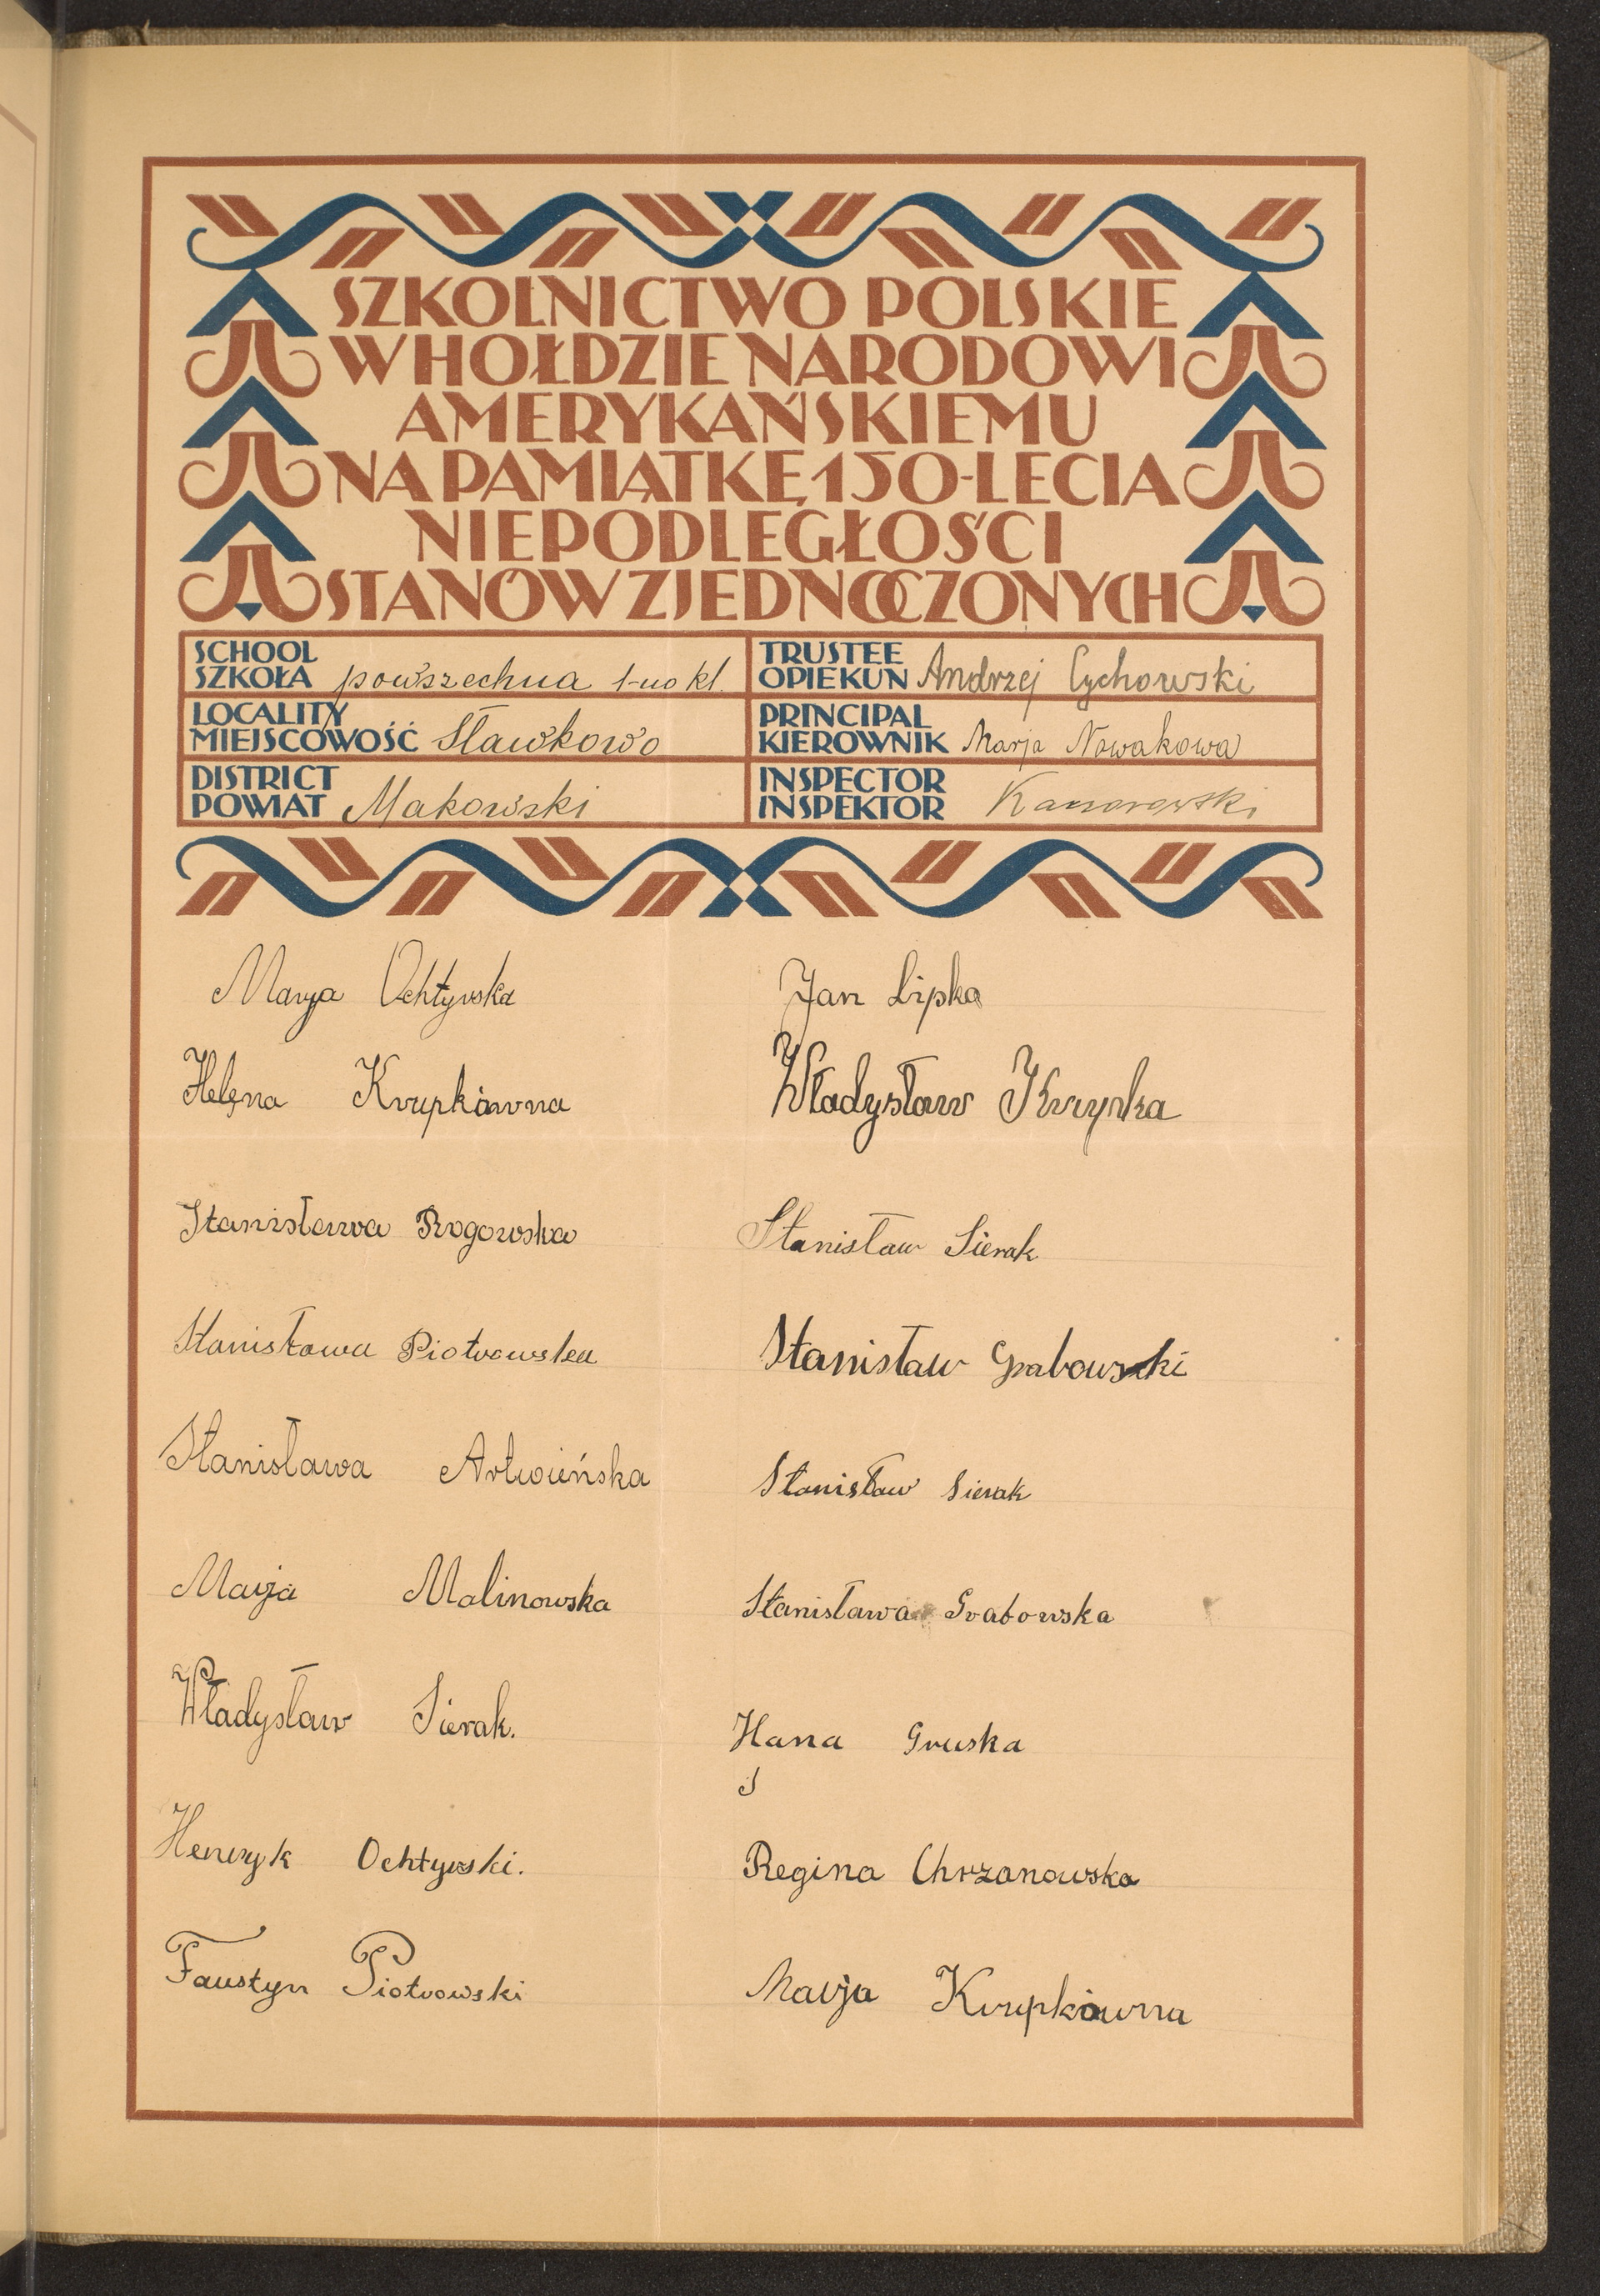 SZKOLNICTWO POLSKIE
W HOŁDZIE NARODOWI
AMERYKAŃSKIEMU
NA PAMIĄTKĘ 150-LECIA
NIEPODLEGŁOŚCI
STANÓW ZJEDNOCZONYCH
SCHOOL
SZKOŁA powszechna 1-no kl.
TRUSTEE
OPIEKUN Andrzej Cychowski
LOCALITY
MIEJSCOWOŚĆ Sławkowo
PRINCIPAL
KIEROWNIK Marja Nowakowa
DISTRICT
POWIAT Makowski
INSPECTOR
INSPEKTOR
Marja Ochtyrska
Jan Lipka
Helena Krupkówna
Władysław Krupka
Stanisława Rogowska
Stanisław Sierak
Stanisława Piotrowska
Stanisław Grabowski
Stanisława
Stanisław Sierak
Marja Malinowska
Stanisława Grabowska
Władysław Sierak.
Hana Gruska
S
Henryk Ochtyrski.
Regina Chrzanowska
Faustyn Piotrowski
Marja Krupkówna